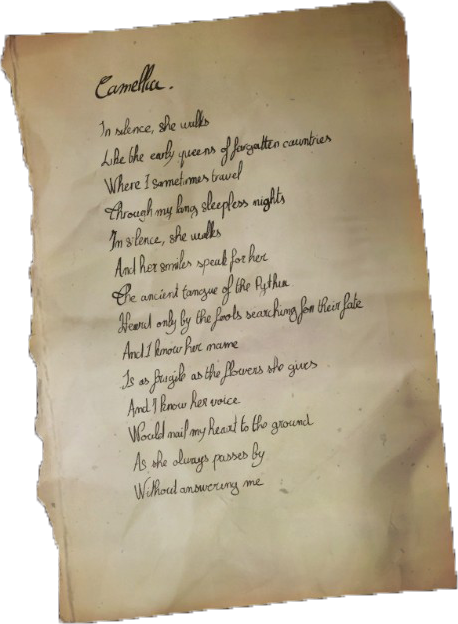 Camellia.
In silence, she walks
Like the early queens of forgotten countries
Where I sometimes travel
Through my long sleepless nights
In silence, she walks
And her smiles speak for her
The ancient tongue of the Pythia
Heard only by the fools searching for their fate
And I know her name
Is as fragile as the flowers she gives
And I know her voice
Would nail my heart to the ground
As she always passes by
Without answering me